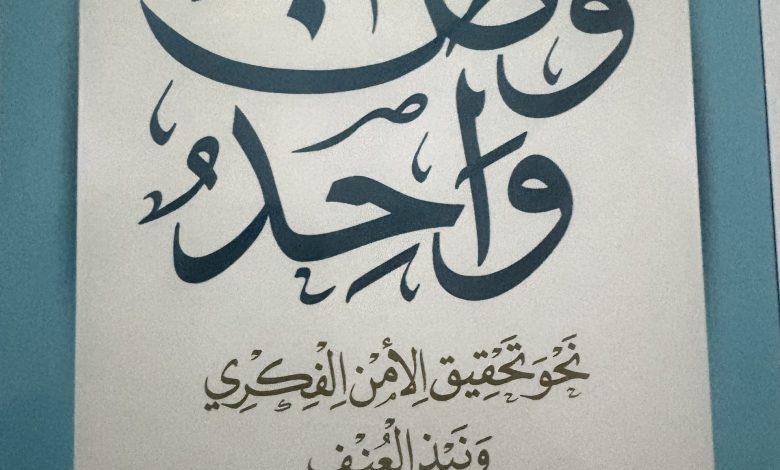 وطن
وَاحِدُ
نَحْوَ تَحْقِيقِ الأَمْنِ الفِكْرِي
وَنَبْذِ العُنْفِ